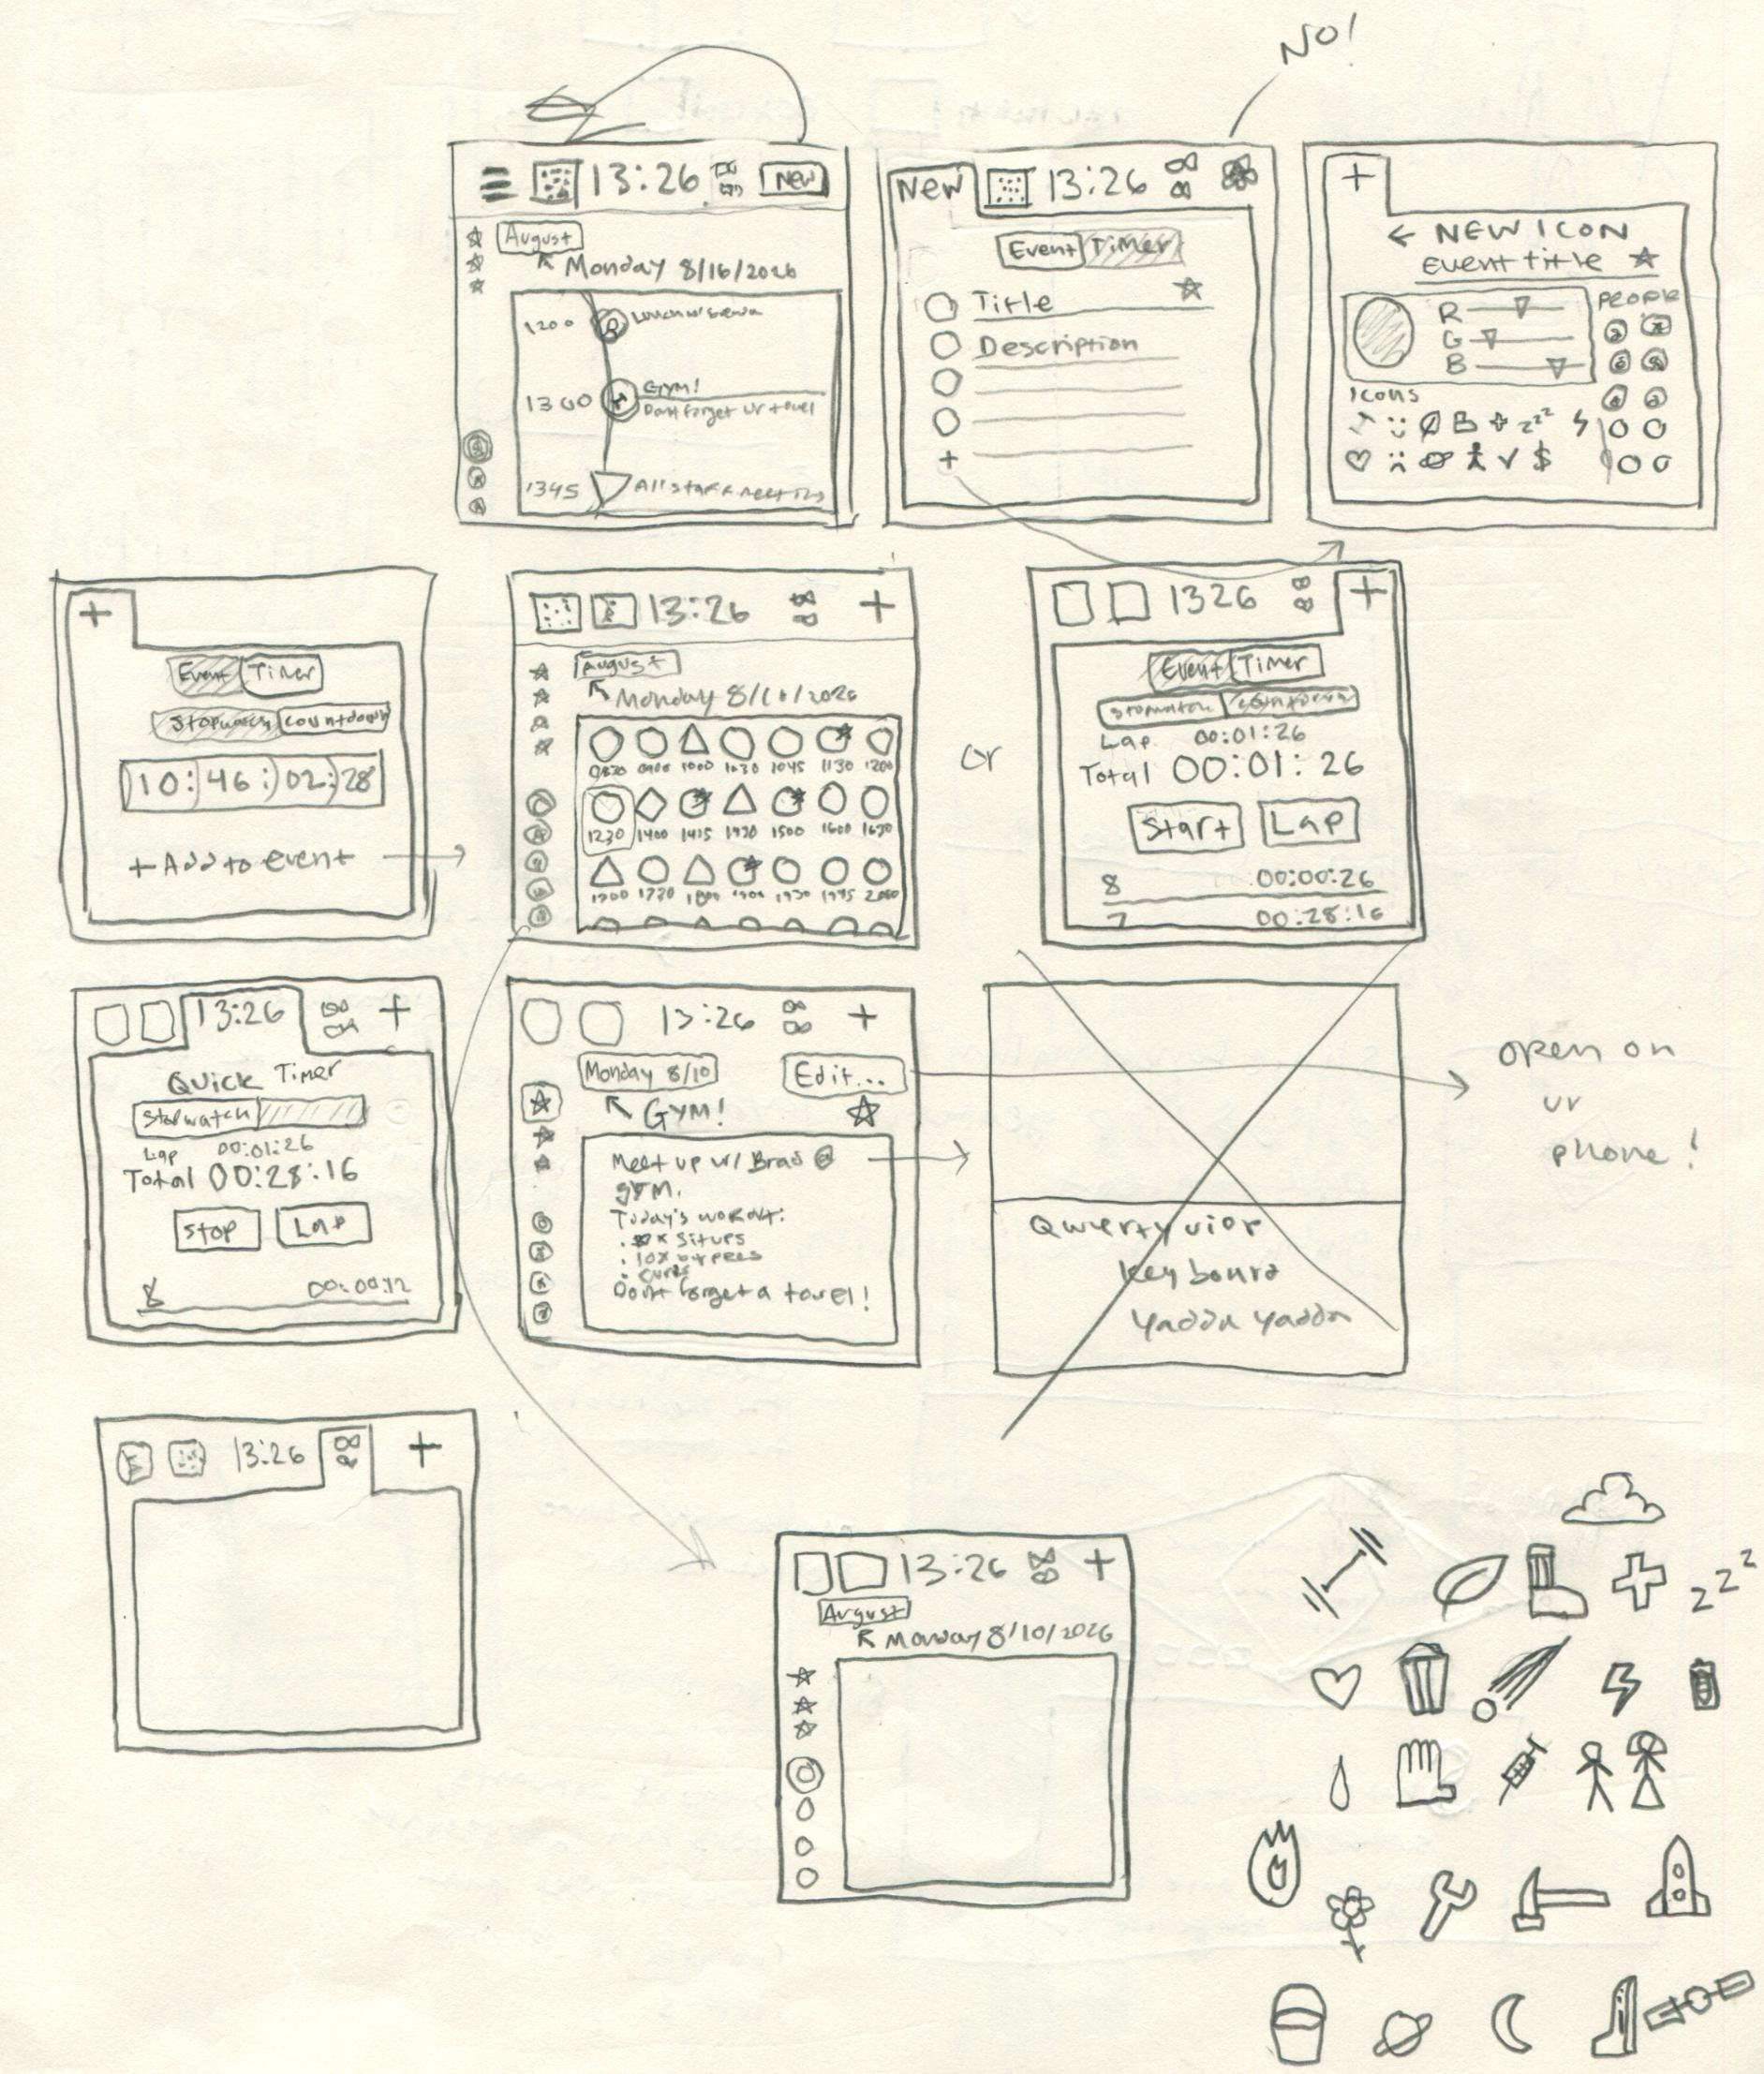 NO!
13:26
New
August
Monday 8/16/2026
1200
1300
Gym!
Dont forget ur towel
1345
All staff meeting
New
13:26
Event
Timer
Title
Description
+
+
← NEW ICON
event title
R
G
B
People
Icons
zzz
$
+
Event
Timer
Stopwatch
countdown
10:46:02:28
+ Add to event
13:26
+
August
Monday 8/10/2026
0830
0900
1000
1030
1045
1130
1200
1230
1400
1415
1430
1500
1600
1630
1700
1720
1800
1900
1930
1945
2000
or
1326
+
Event
Timer
Stopwatch
countdown
Lap
00:01:26
Total 00:01:26
Start
Lap
8
00:00:26
7
00:28:16
13:26
+
Quick Timer
Stopwatch
Lap
00:01:26
Total 00:28:16
Stop
Lap
8
00:00:12
13:26
+
Monday 8/10
Edit...
Gym!
Meet up w/ Brad @
gym.
Today's workout:
situps
· 10x burpees
· curls
Dont forget a towel!
Qwertyuiop
keyboard
yadda yadda
open on
ur
phone!
13:26
+
13:26
+
August
Monday 8/10/2026
zzz